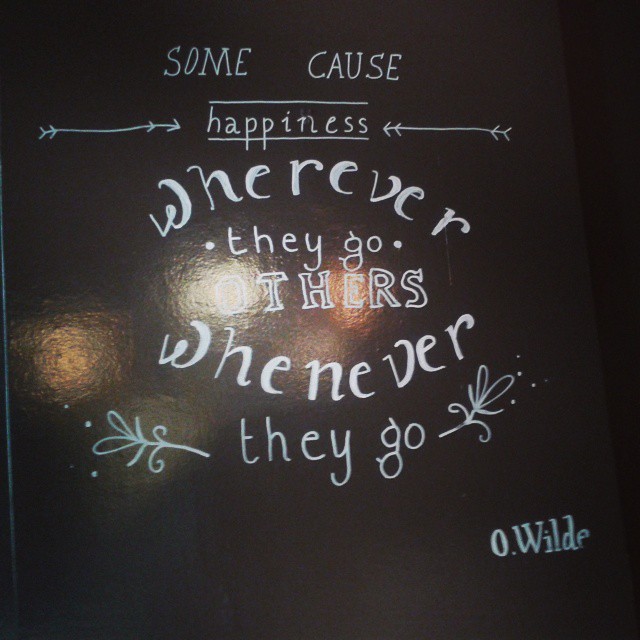 SOME CAUSE
happiness
wherever
• they go •
OTHERS
whenever
they go
O.Wilde